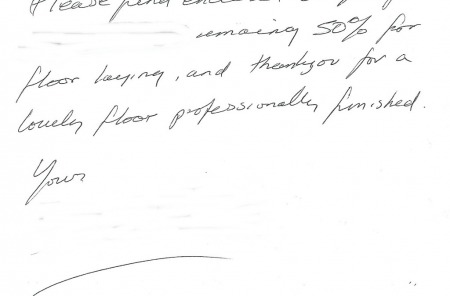 Please find enclosed
remaining 50% for
floor laying, and thankyou for a
lovely floor professionally finished.
Yours